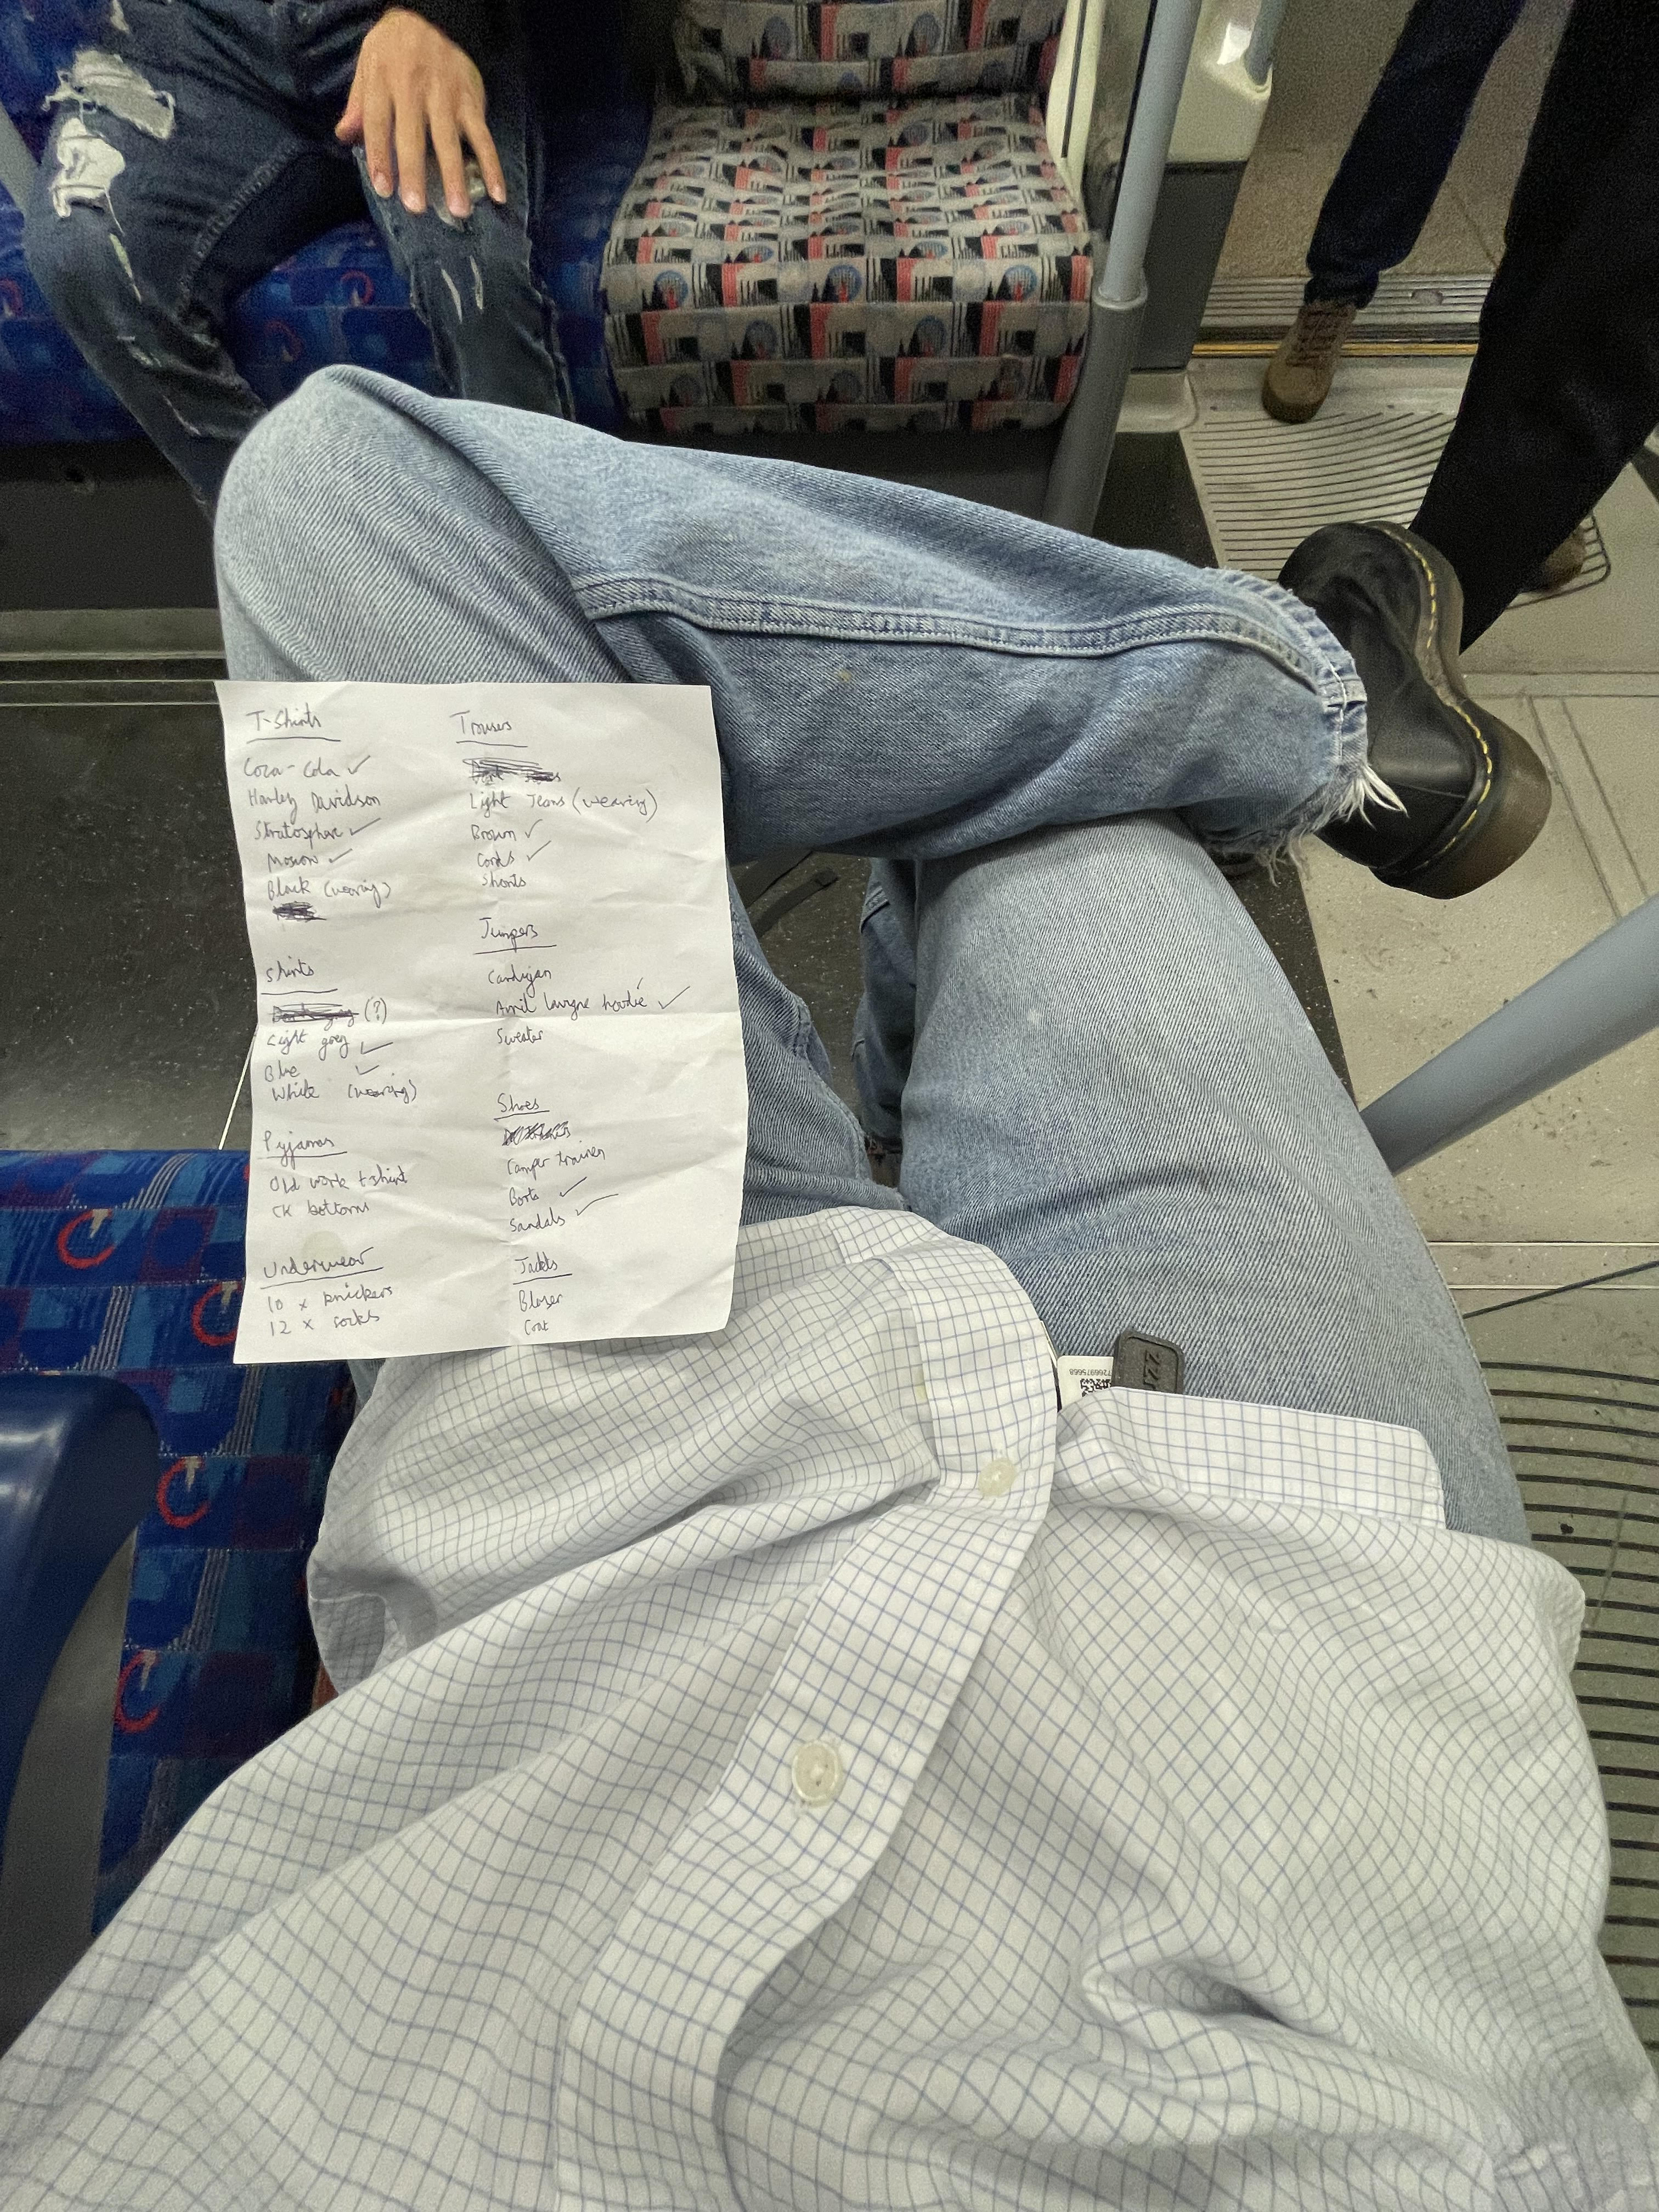 T-Shirts
Coca-Cola ✓
Harley Davidson
Stratosphere ✓
✓
Black (wearing)
Shirts
(?)
Light grey ✓
Blue ✓
White (wearing)
Pyjamas
Old work t-shirt
CK bottoms
Underwear
10 x knickers
12 x socks
Trousers
Light Jeans (wearing)
Brown ✓
Cords ✓
Shorts
Jumpers
Cardigan
Avril lavigne hoodie ✓
Sweater
Shoes
Camper trainers
Boots ✓
Sandals ✓
Jackets
Blazer
Coat
7266975668